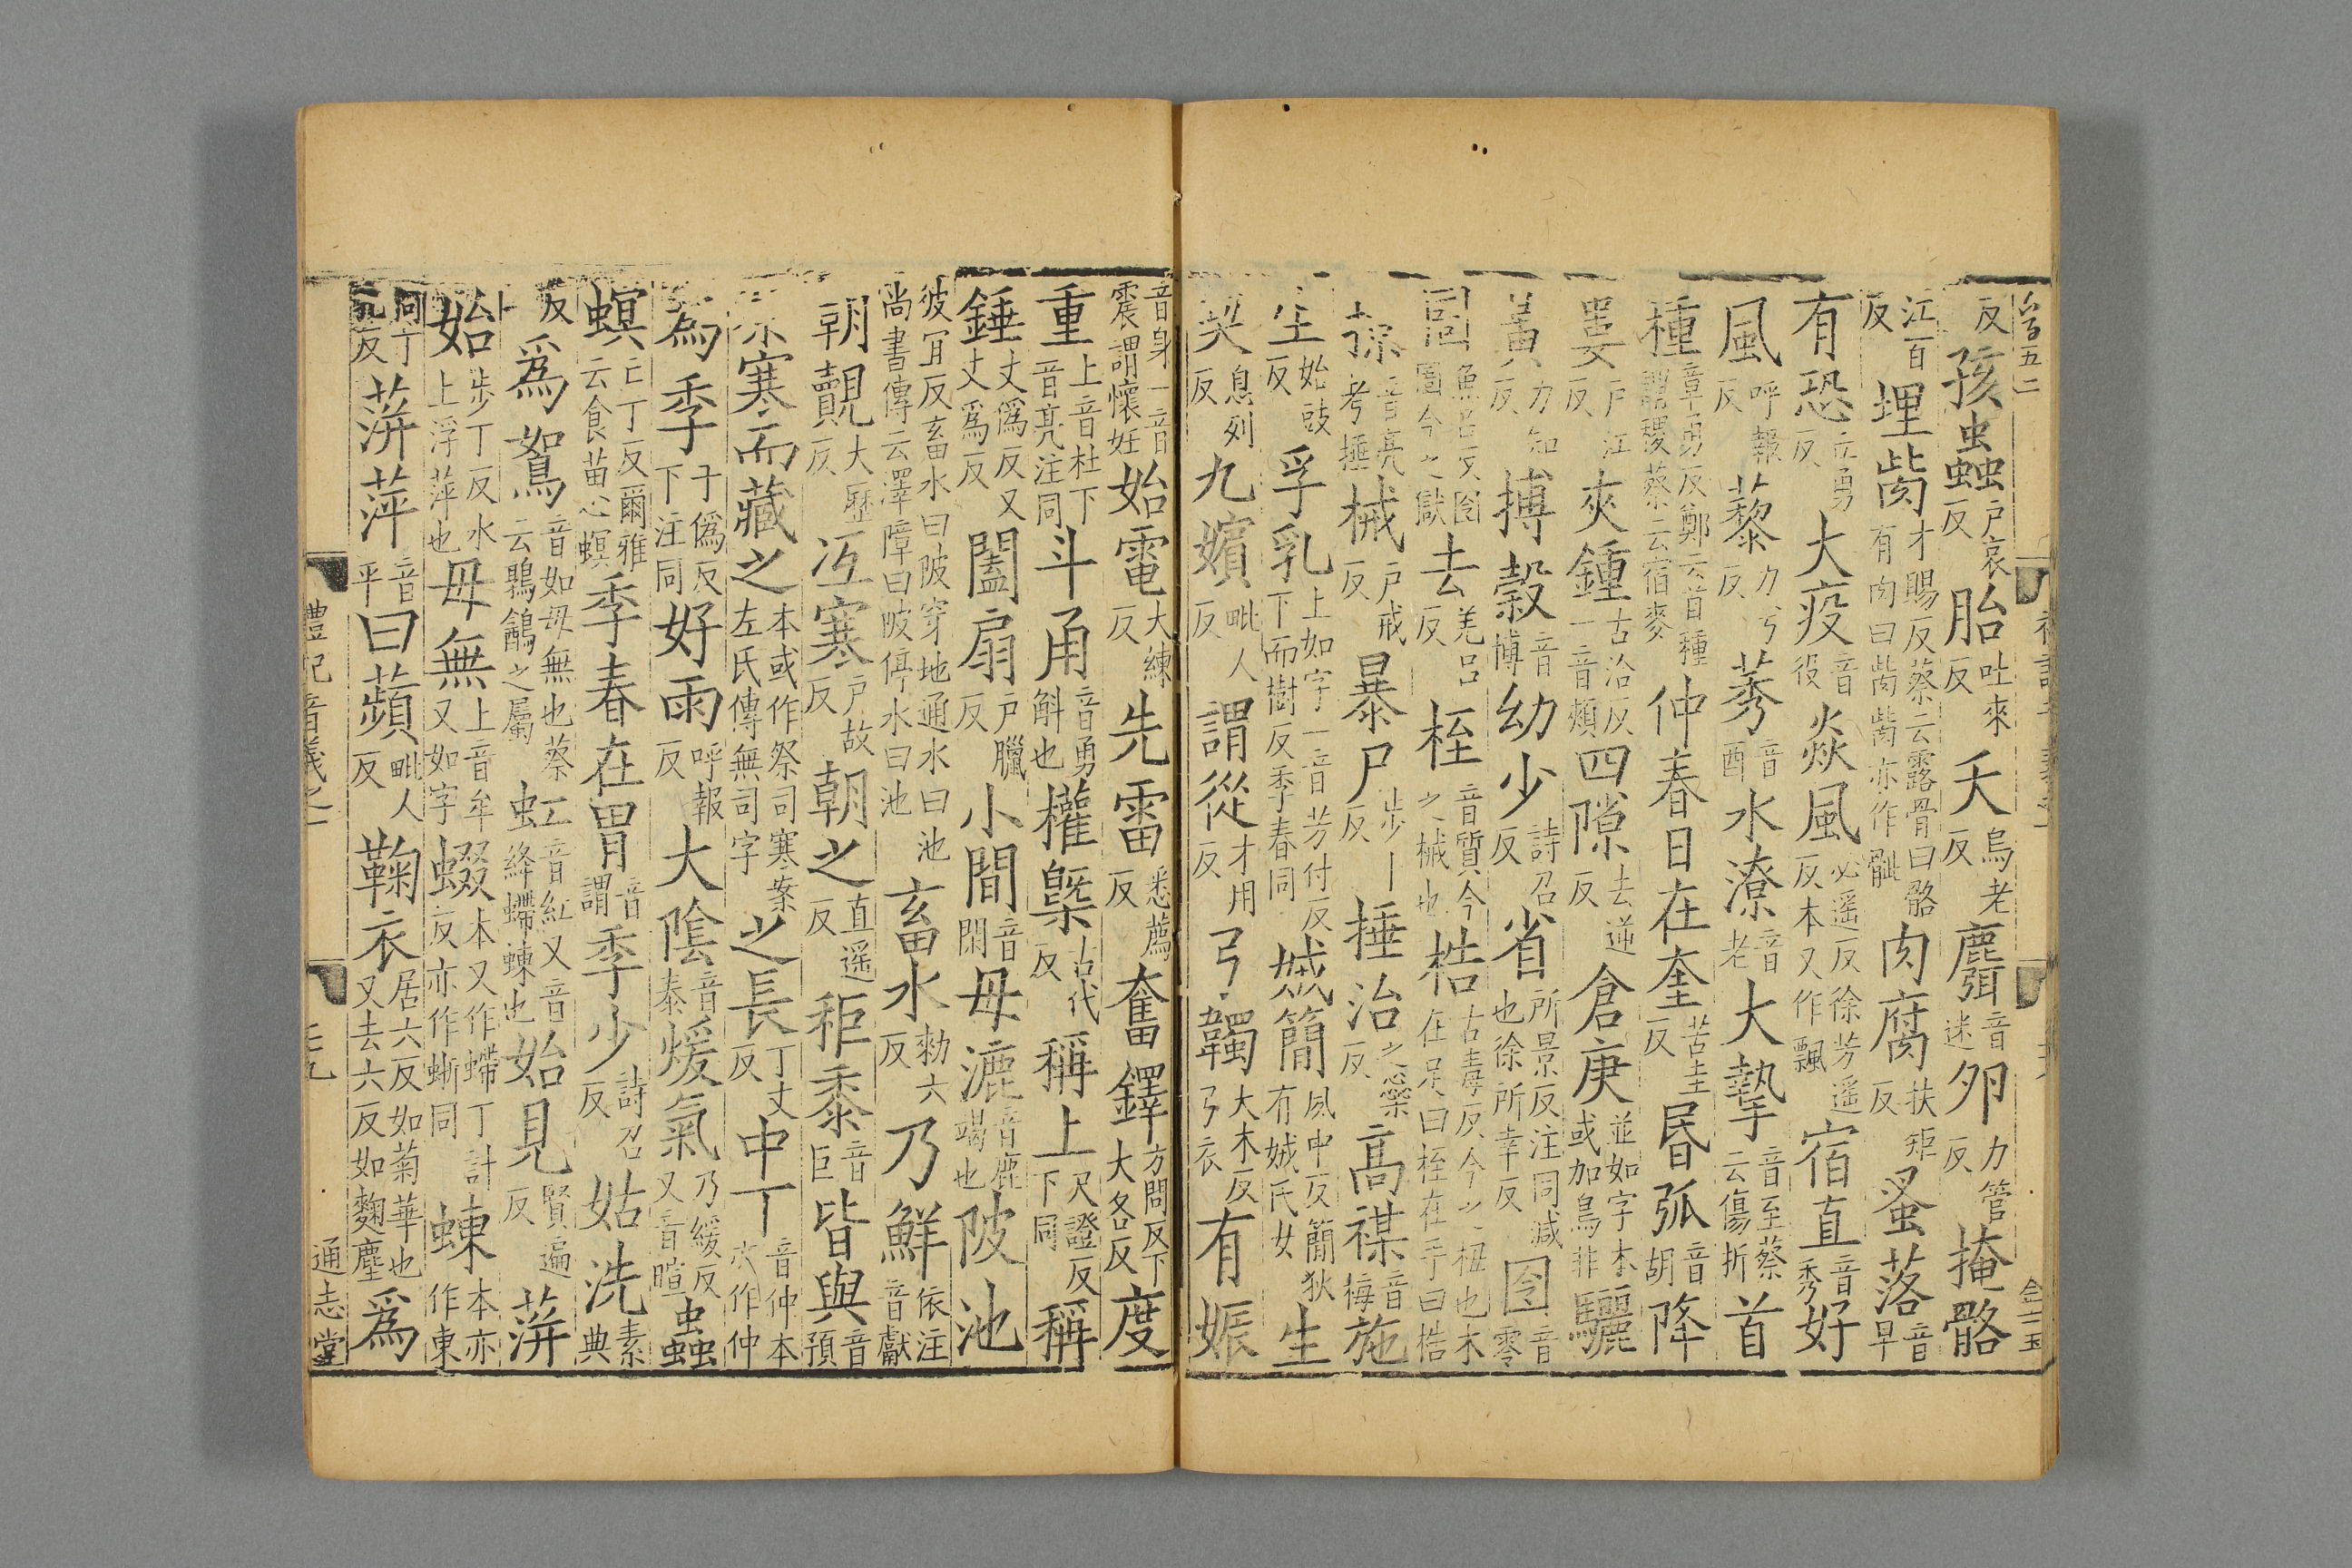 反孩蟲戶哀反胎吐來反夭烏老反麛音迷卵力管反掩骼
江百反埋胔才賜反蔡云露骨曰骼有肉曰胔胔亦作骴肉腐扶矩反蚤落音早
有恐丘勇反大疫音役焱風必遥反徐芳遥反本又作飄宿直音秀好
風呼報反藜力兮反莠音酉水潦音老大摯音至蔡云傷折首
種章勇反鄭云首種謂稷蔡云宿麥仲春日在奎苦圭反昬弧音胡降
婁戶江反夾鍾古洽反一音頰四隙去逆反倉庚並如字本或加鳥非驪
黃力知反搏穀音博幼少詩召反省所景反注同減也徐所幸反囹音零
圄魚呂反囹圄今之獄去羌呂反桎音質今之械也梏古毒反今之杻也木在足曰桎在手曰梏
掠音亮考捶械戶戒反暴尸步卜反捶治之橤反高禖音梅施
生始豉反孚乳上如字一音芳付反下而樹反季春同娀簡夙中反簡狄有娀氏女生
契息列反九嬪毗人反謂從才用反弓韣大木反弓衣有娠
音身一音震謂懷妊始電大練反先雷悉薦反奮鐸方問反下大各反度
重上音杜下音亮注同斗甬音勇斛也權槩古代反稱上尺證反下同稱
錘丈僞反又丈爲反闔扇戶臘反小間音閑毋漉音鹿竭也陂池
彼冝反畜水曰陂穿地通水曰池尚書傳云澤障曰陂停水曰池畜水勑六反乃鮮依注音獻
朝覿大歷反冱寒戶故反朝之直遥反秬黍音巨皆與音預
祭寒而藏之本或作祭司寒案左氏傳無司字之長丁丈反中丁音仲本亦作仲
為季于僞反下注同好雨呼報反大陰音泰煖氣乃緩反又音暄蟲
螟亡丁反爾雅云食苗心螟季春在胃音謂季少詩召反姑洗素典
反爲鴽音如毋無也蔡云鶉鷃之屬虹工音紅又音絳螮蝀也始見賢遍反蓱
始步丁反水上浮萍也毋無上音牟又如字蝃本又作螮丁計反亦作蜥同蝀本亦作東
同丁孔反蓱萍音平曰蘋毗人反鞠衣居六反如菊華也又去六反如麴塵爲
禮記音義之一
通志堂